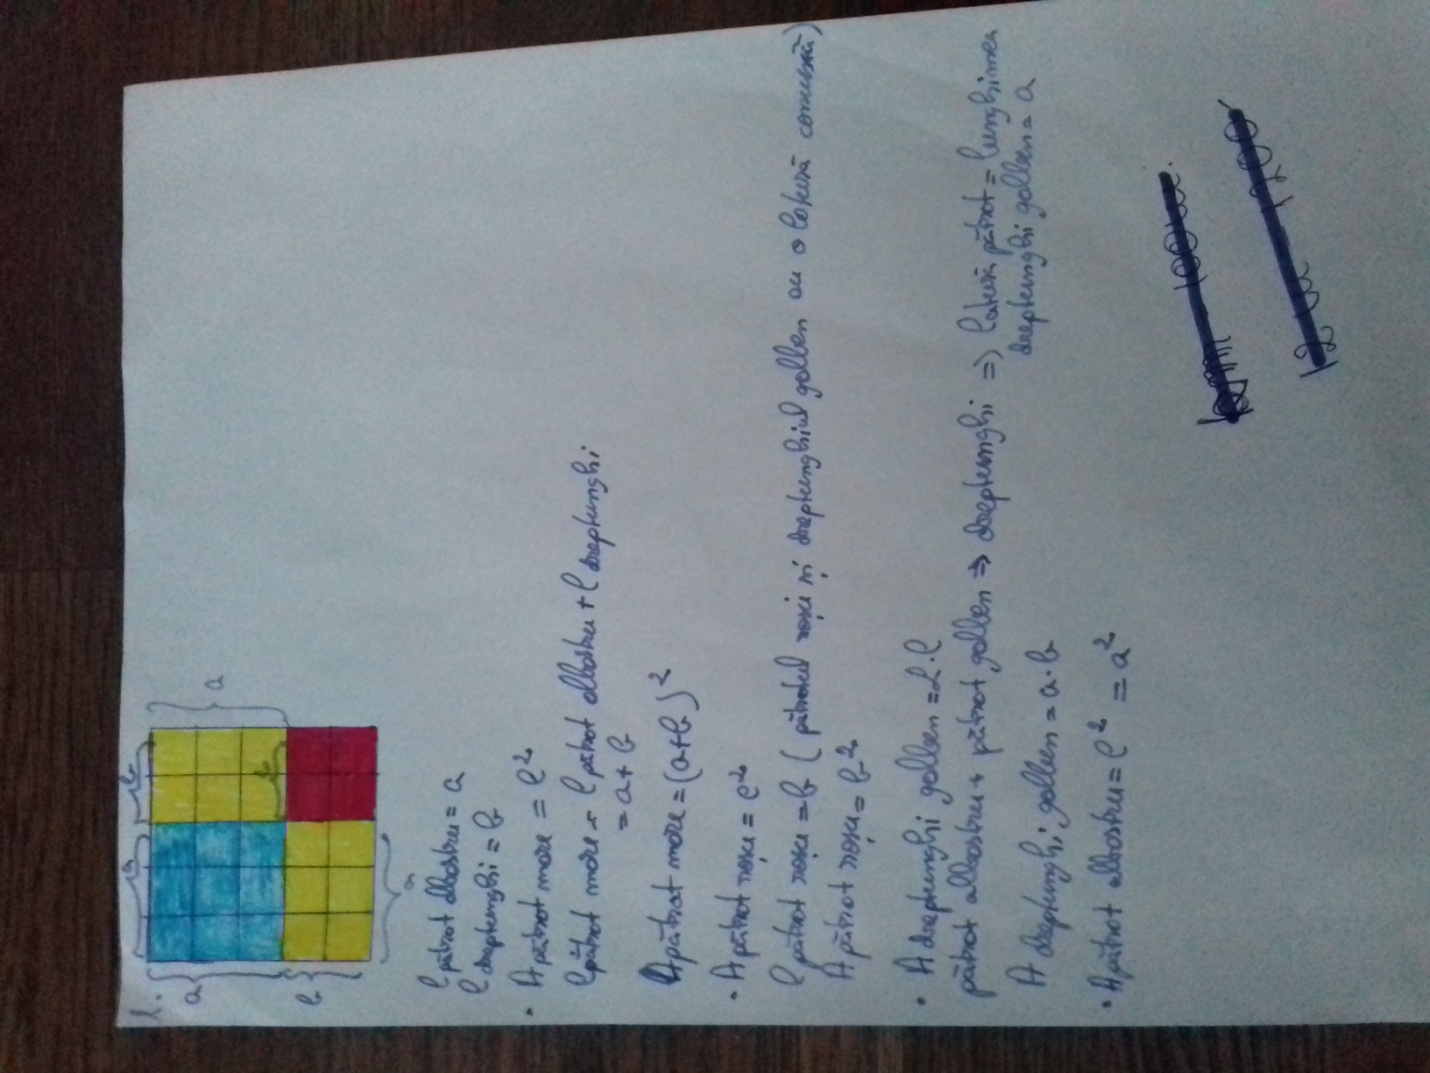 1.
a
b
a
b
b
a
a
l pătrat albastru = a
l dreptunghi = b
• A pătrat mare = l²
l pătrat mare = l pătrat albastru + l dreptunghi
= a + b
A pătrat mare = (a+b)²
• A pătrat roșu = l²
l pătrat roșu = b (pătratul roșu și dreptunghiul galben au o latură comună)
A pătrat roșu = b²
• A dreptunghi galben = L·l
pătrat albastru + pătrat galben => dreptunghi => latură pătrat = lungimea
dreptunghi galben = a
A dreptunghi galben = a·b
• A pătrat albastru = l² = a²